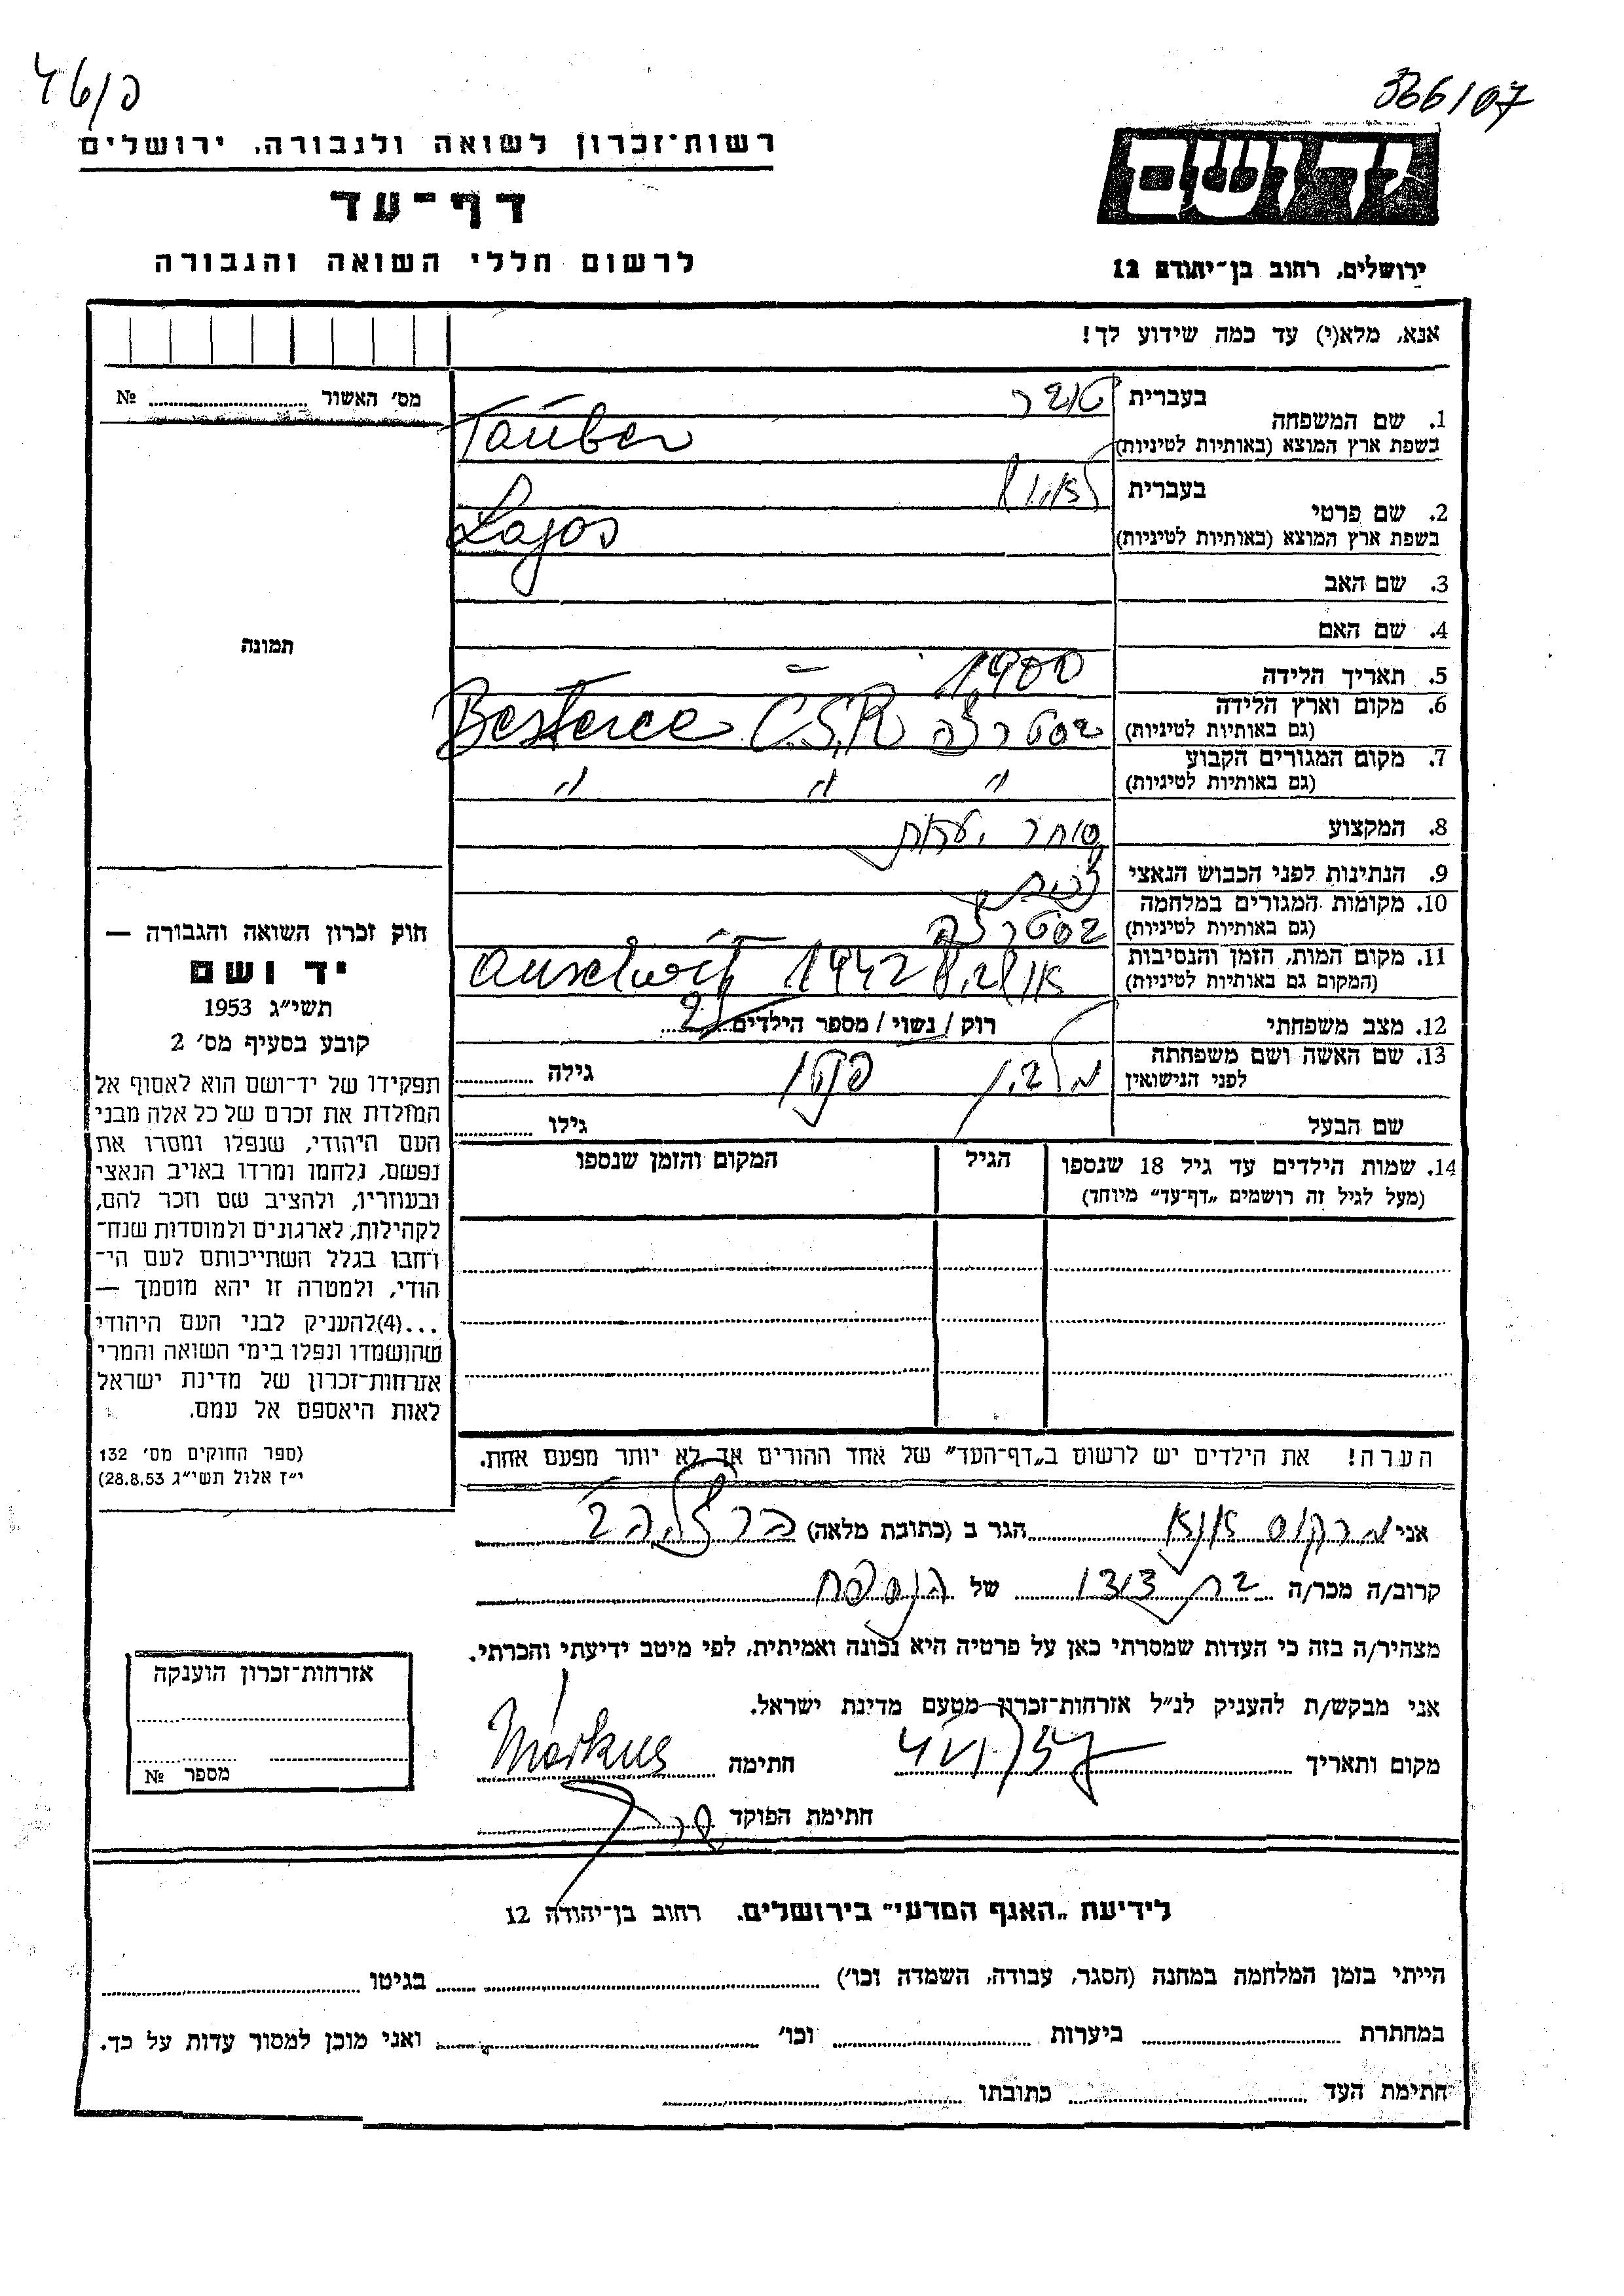 366/07
46/פ
יד ושם
רשות־זכרון לשואה ולגבורה, ירושלים
דף־עד
לרשום חללי השואה והגבורה
ירושלים, רחוב בן־יהודה 12
אנא, מלא(י) עד כמה שידוע לך!
מס׳ האשור № 
1. שם המשפחה
בעברית טובר
בשפת ארץ המוצא (באותיות לטיניות) Tauber
2. שם פרטי
בעברית
בשפת ארץ המוצא (באותיות לטיניות) Lajos
3. שם האב
4. שם האם
5. תאריך הלידה 1900
6. מקום וארץ הלידה
(גם באותיות לטיניות) בסטרצה Č.S.R Besterce
7. מקום המגורים הקבוע
(גם באותיות לטיניות) " " "
8. המקצוע סוחר יערות
9. הנתינות לפני הכבוש הנאצי
10. מקומות המגורים במלחמה
(גם באותיות לטיניות) בסטרצה
11. מקום המות, הזמן והנסיבות
(המקום גם באותיות לטיניות) 1942 Auschwitz
12. מצב משפחתי רוק / נשוי / מספר הילדים 2
13. שם האשה ושם משפחתה
לפני הנישואין גילה
שם הבעל גילו
14. שמות הילדים עד גיל 18 שנספו
(מעל לגיל זה רושמים „דף־עד״ מיוחד)
הגיל
המקום והזמן שנספו
הערה! את הילדים יש לרשום ב„דף־העד״ של אחד ההורים אך לא יותר מפעם אחת.
תמונה
חוק זכרון השואה והגבורה —
יד ושם
תשי״ג 1953
קובע בסעיף מס׳ 2
תפקידו של יד־ושם הוא לאסוף אל
המולדת את זכרם של כל אלה מבני
העם היהודי, שנפלו ומסרו את
נפשם, נלחמו ומרדו באויב הנאצי
ובעוזריו, ולהציב שם וזכר להם,
לקהילות, לארגונים ולמוסדות שנח־
רחבו בגלל השתייכותם לעם הי־
הודי, ולמטרה זו יהא מוסמך —
...(4)להעניק לבני העם היהודי
שהושמדו ונפלו בימי השואה והמרי
אזרחות־זכרון של מדינת ישראל
לאות היאספם אל עמם.
(ספר החוקים מס׳ 132
י״ז אלול תשי״ג 28.8.53)
אני מרקוס אנא הגר ב (כתובת מלאה)
קרוב/ה מכר/ה בת דודו של הנספה
מצהיר/ה בזה כי העדות שמסרתי כאן על פרטיה היא נכונה ואמיתית, לפי מיטב ידיעתי והכרתי.
אני מבקש/ת להעניק לנ״ל אזרחות־זכרון מטעם מדינת ישראל.
מקום ותאריך 4/VI/57 חתימה Márkus
חתימת הפוקד
אזרחות־זכרון הוענקה
מספר №
לידיעת „האגף המדעי״ בירושלים, רחוב בן־יהודה 12
הייתי בזמן המלחמה במחנה (הסגר, עבודה, השמדה וכו׳) בגיטו
במחתרת ביערות וכו׳ ואני מוכן למסור עדות על כך.
חתימת העד כתובתו